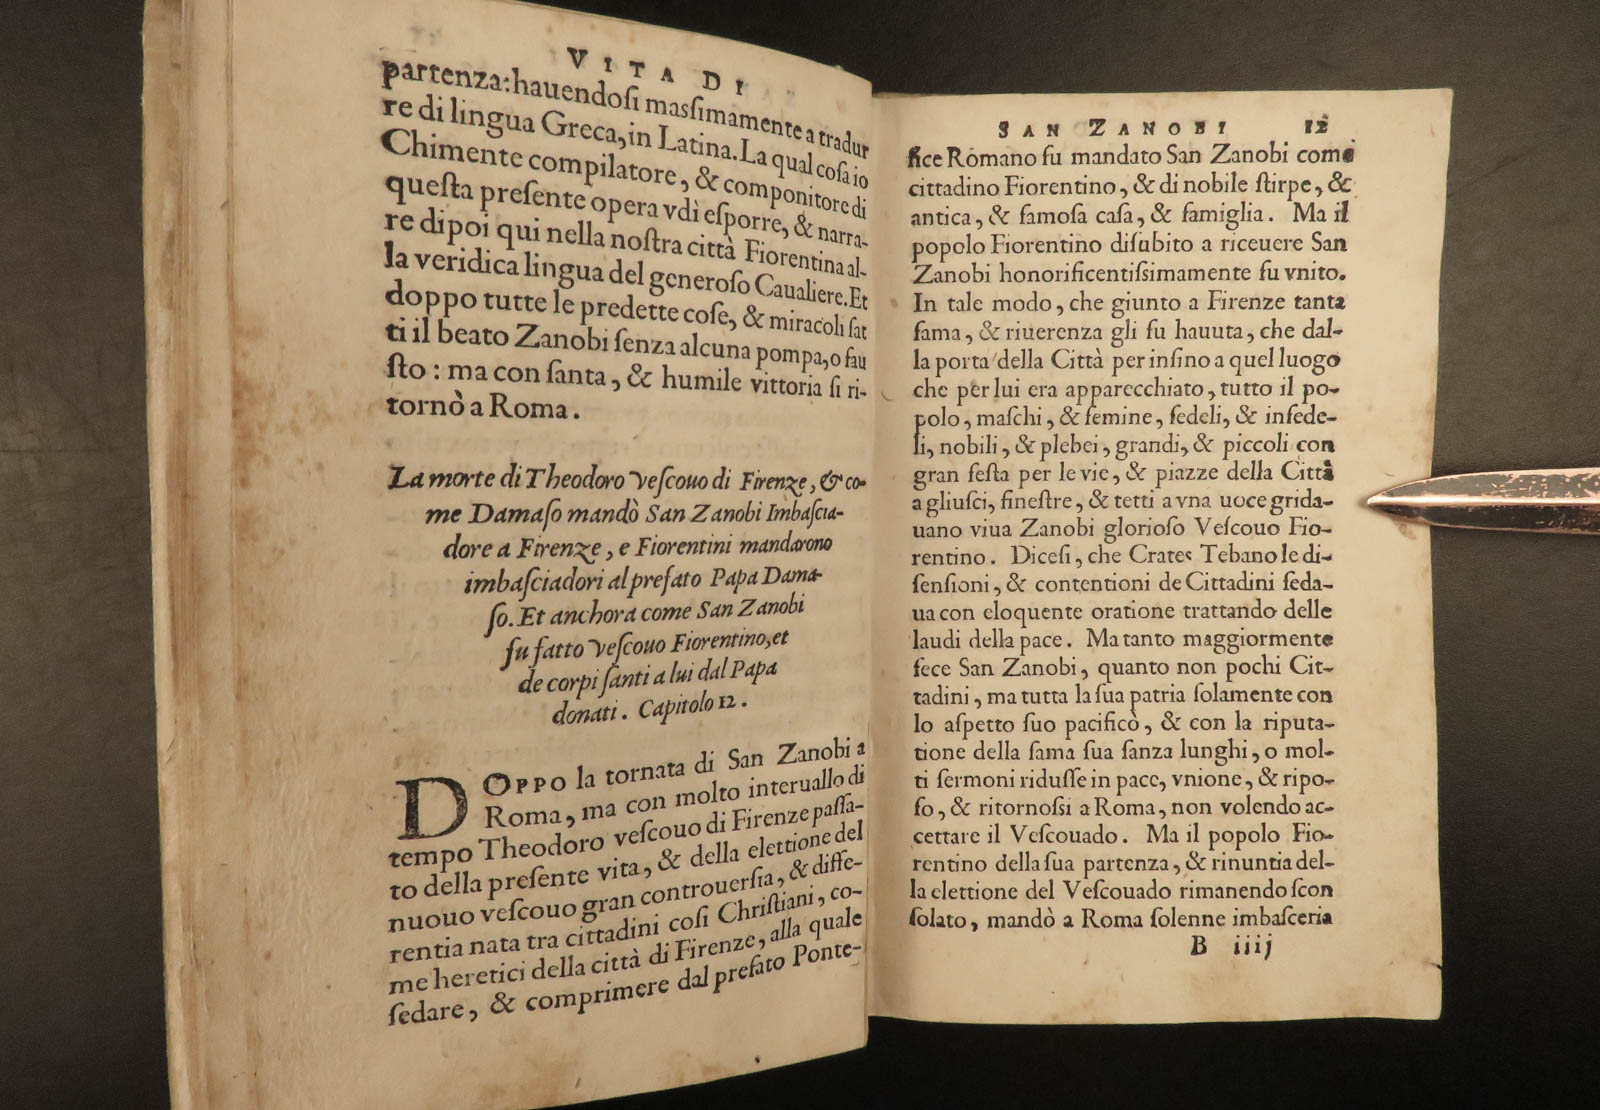 VITA DI
partenza: hauendosi massimamente a tradur
re di lingua Greca, in Latina. La qual cosa io
Chimente compilatore, & componitore di
questa presente opera vdì esporre, & narra-
re dipoi qui nella nostra città Fiorentina al-
la veridica lingua del generoso Caualiere. Et
doppo tutte le predette cose, & miracoli fat
ti il beato Zanobi senza alcuna pompa, o fau
sto: ma con santa, & humile vittoria si ri-
tornò a Roma.
La morte di Theodoro vescouo di Firenze, & co-
me Damaso mandò San Zanobi Imbascia-
dore a Firenze, e Fiorentini mandarono
imbasciadori al prefato Papa Dama-
so. Et anchora come San Zanobi
fu fatto vescouo Fiorentino, et
de corpi santi a lui dal Papa
donati. Capitolo 12.
DOPPO la tornata di San Zanobi a
Roma, ma con molto interuallo di
tempo Theodoro vescouo di Firenze passa-
to della presente vita, & della elettione del
nuouo vescouo gran controuersia, & diffe-
rentia nata tra cittadini cosi Christiani, co-
me heretici della città di Firenze, alla quale
sedare, & comprimere dal prefato Ponte-
SAN ZANOBI 12
fice Romano fu mandato San Zanobi come
cittadino Fiorentino, & di nobile stirpe, &
antica, & famosa casa, & famiglia. Ma il
popolo Fiorentino disubito a riceuere San
Zanobi honorificentissimamente fu vnito.
In tale modo, che giunto a Firenze tanta
fama, & riuerenza gli fu hauuta, che dal-
la porta della Città per insino a quel luogo
che per lui era apparecchiato, tutto il po-
polo, maschi, & femine, fedeli, & infede-
li, nobili, & plebei, grandi, & piccoli con
gran festa per le vie, & piazze della Città
a gliusci, finestre, & tetti a vna uoce grida-
uano viua Zanobi glorioso Vescouo Fio-
rentino. Dicesi, che Crates Tebano le di-
sensioni, & contentioni de Cittadini seda-
ua con eloquente oratione trattando delle
laudi della pace. Ma tanto maggiormente
fece San Zanobi, quanto non pochi Cit-
tadini, ma tutta la sua patria solamente con
lo aspetto suo pacificò, & con la riputa-
tione della fama sua sanza lunghi, o mol-
ti sermoni ridusse in pace, vnione, & ripo-
so, & ritornossi a Roma, non volendo ac-
cettare il Vescouado. Ma il popolo Fio-
rentino della sua partenza, & rinuntia del-
la elettione del Vescouado rimanendo scon
solato, mandò a Roma solenne imbasceria
B iiij